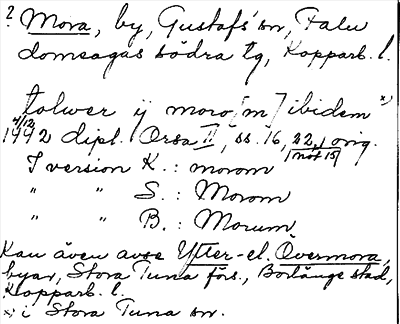 ? Mora, by, Gustafs sn, Falu
domsagas södra tg, Kopparb. l.
tolwer ij moro[m] ibidem x)
4/12
1442 dipl. Orsa II, ss. 16, 22, orig.
[möt 15]
I version K. : morom
" " S. : Morom
" " B. : Morum
Kan även avse Ytter- el. Övermora,
byar, Stora Tuna förs., Borlänge stad,
Kopparb. l.
x) i Stora Tuna sn.